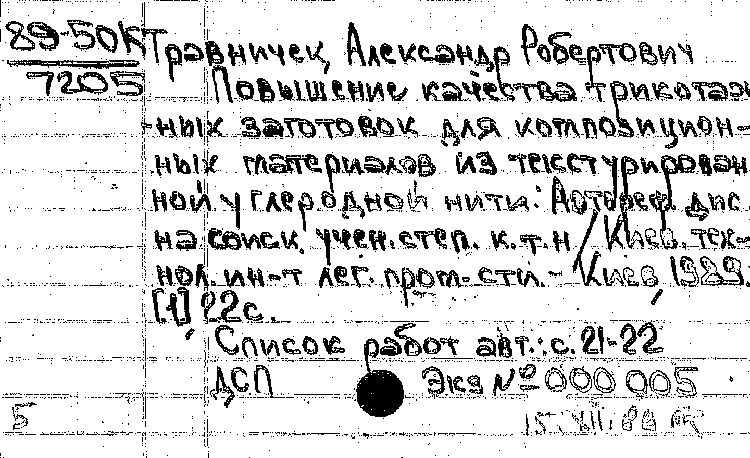 89-50к Травничек, Александр Робертович
7205 Повышение качества трикотаж-
ных заготовок для композицион-
ных материалов из текстурирован
ной углеродной нити: Автореф. дис
на соиск. учен. степ. к.т.н / Киев. тех-
нол. ин-т лег. пром-сти. - Киев, 1989.
[1] 22с.
Список работ авт.: с. 21-22
ДСП Экз № 000 005
5